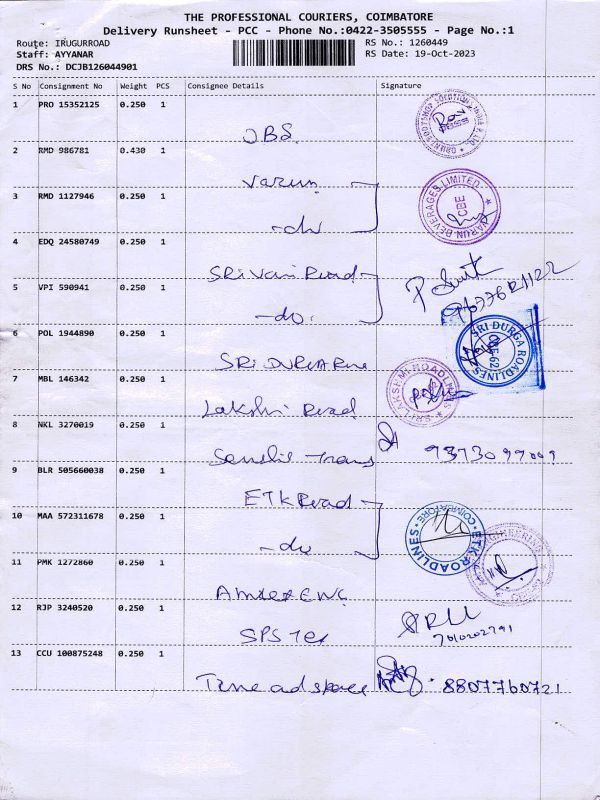 THE PROFESSIONAL COURIERS, COIMBATORE
Delivery Runsheet - PCC - Phone No.:0422-3505555 - Page No.:1
Route: IRUGURROAD
RS No.: 1260449
Staff: AYYANAR
RS Date: 19-Oct-2023
DRS No.: DCJB126044901
S No Consignment No Weight PCS Consignee Details Signature
1 PRO 15352125 0.250 1
OBS
2 RMD 986781 0.430 1
Varun
VARUN BEVERAGES LIMITED
CBE
3 RMD 1127946 0.250 1
-do
4 EDQ 24580749 0.250 1
SRI Vari Road
5 VPI 590941 0.250 1
-do.
6 POL 1944890 0.250 1
SRI DURGA
SRI DURGA ROADLINES
7 MBL 146342 0.250 1
Lakshi Road
SRI LAKSHMI ROADLINES
8 NKL 3270019 0.250 1
Trans
9 BLR 505660038 0.250 1
ETK Road
10 MAA 572311678 0.250 1
-do
ETK ROADLINES
COIMBATORE
11 PMK 1272860 0.250 1
12 RJP 3240520 0.250 1
SPS Tex
13 CCU 100875248 0.250 1
Time ad space
8807760721